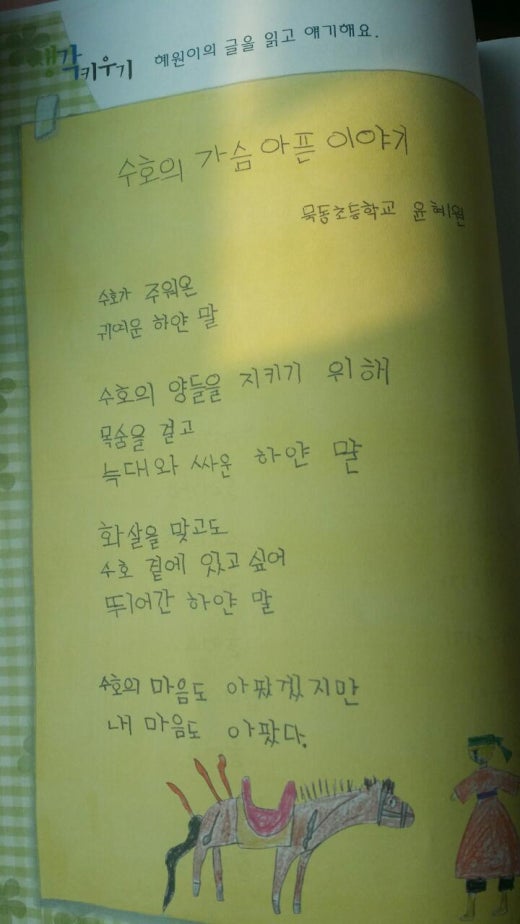 생각키우기 혜원이의 글을 읽고 얘기해요.
수호의 가슴 아픈 이야기
묵동초등학교 윤혜원
수호가 주워온
귀여운 하얀 말
수호의 양들을 지키기 위해
목숨을 걸고
늑대와 싸운 하얀 말
화살을 맞고도
수호 곁에 있고 싶어
뛰어간 하얀 말
수호의 마음도 아팠겠지만
내 마음도 아팠다.